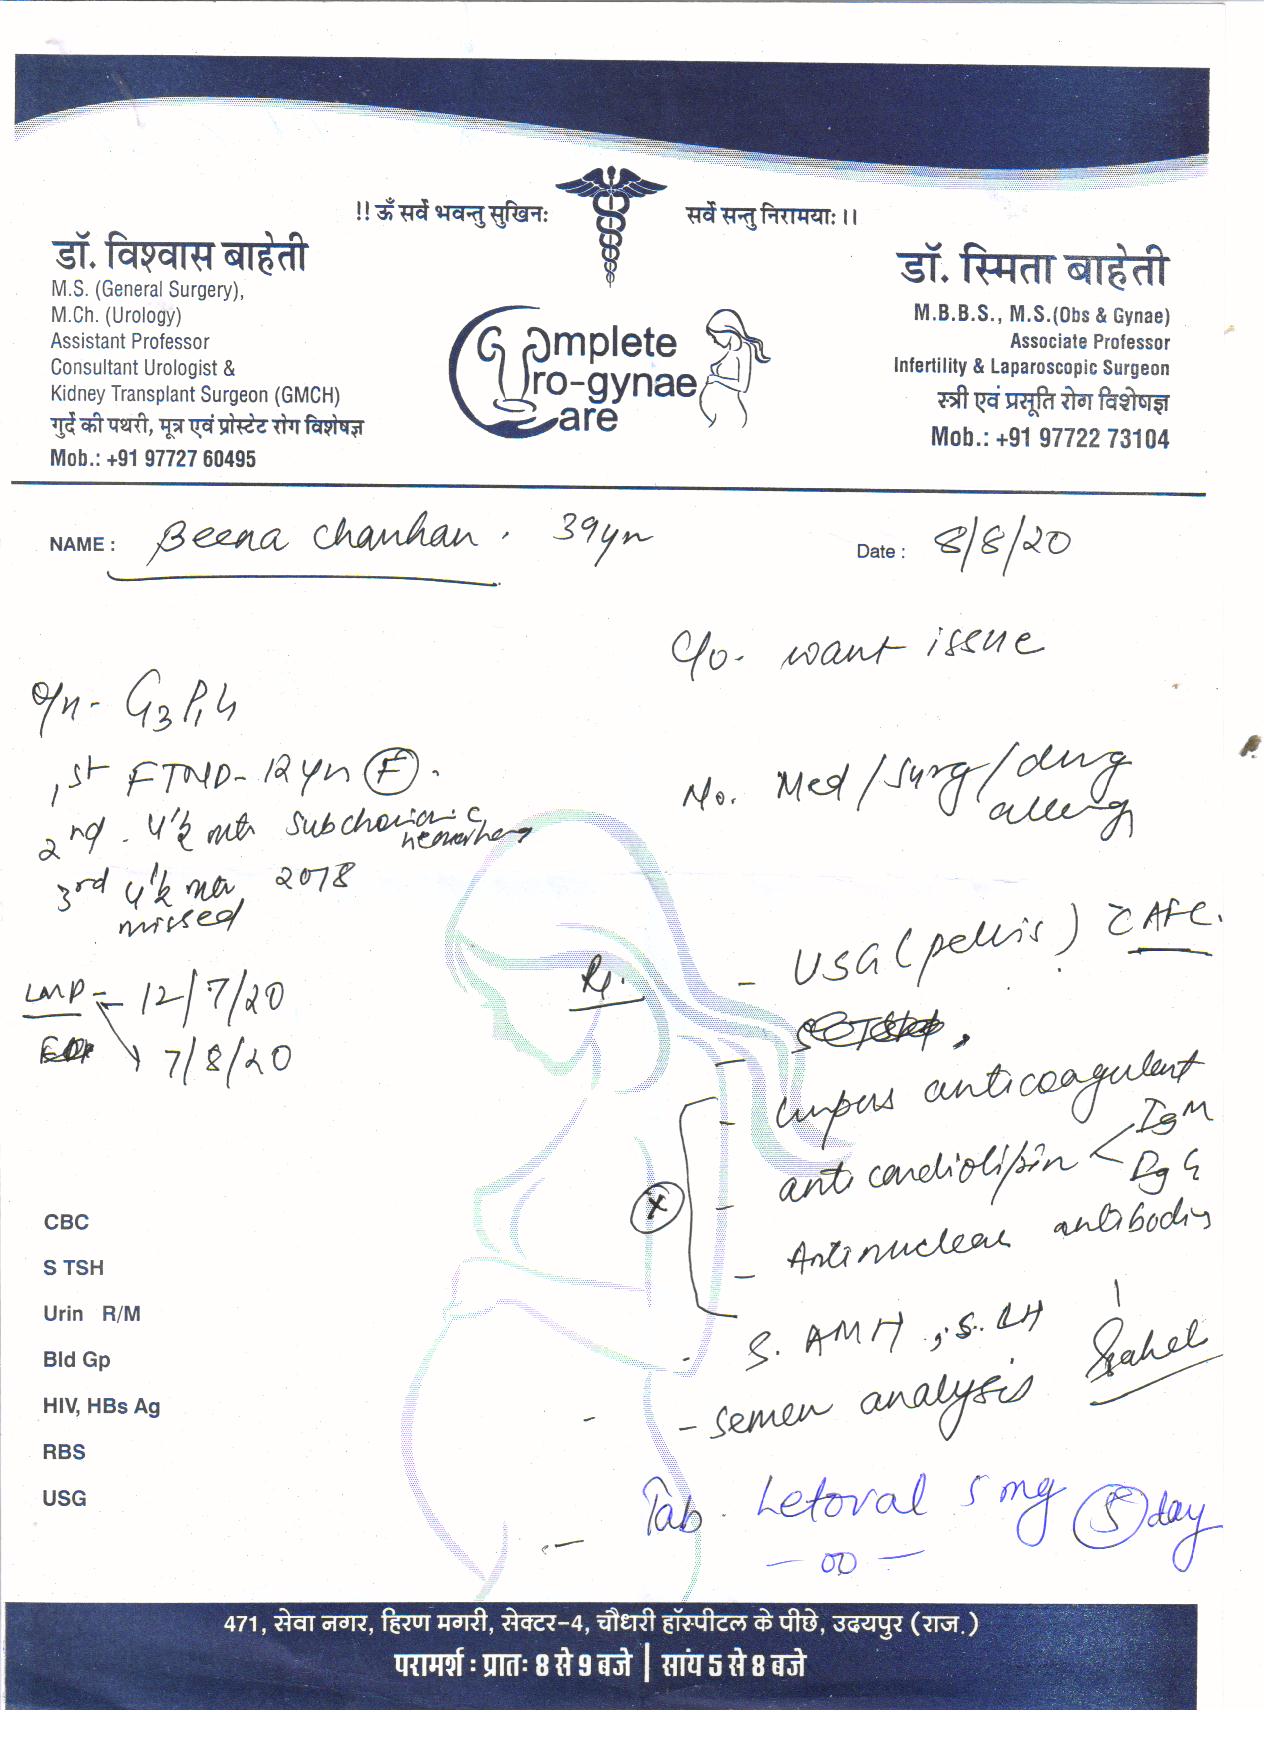 !! ॐ सर्वे भवन्तु सुखिनः सर्वे सन्तु निरामयाः ।।
डॉ. विश्वास बाहेती
M.S. (General Surgery),
M.Ch. (Urology)
Assistant Professor
Consultant Urologist &
Kidney Transplant Surgeon (GMCH)
गुर्दे की पथरी, मूत्र एवं प्रोस्टेट रोग विशेषज्ञ
Mob.: +91 97727 60495
Complete
Uro-gynae
Care
डॉ. स्मिता बाहेती
M.B.B.S., M.S.(Obs & Gynae)
Associate Professor
Infertility & Laparoscopic Surgeon
स्त्री एवं प्रसूति रोग विशेषज्ञ
Mob.: +91 97722 73104
NAME : Beena Chauhan. 39yr
Date : 8/8/20
C/o- want issue
O/H - G3P1L1
1st FTND - 12yr F.
2nd - 4½ mth Subchorionic
hemorrhage
3rd 4½ mth 2018
missed
No. Med/Surg/drug
allergy
LMP - 12/7/20
7/8/20
Rx.
- USG (pelvis) c̄ AFC.
- Lupus anticoagulant
- anti cardiolipin < IgM
IgG
- Antinuclear antibodies
- S. AMH, S. LH
- Semen analysis
- Tab. Letoval 5 mg 5 day
- OD -
CBC
S TSH
Urin R/M
Bld Gp
HIV, HBs Ag
RBS
USG
471, सेवा नगर, हिरण मगरी, सेक्टर-4, चौधरी हॉस्पीटल के पीछे, उदयपुर (राज.)
परामर्श : प्रातः 8 से 9 बजे | सांय 5 से 8 बजे